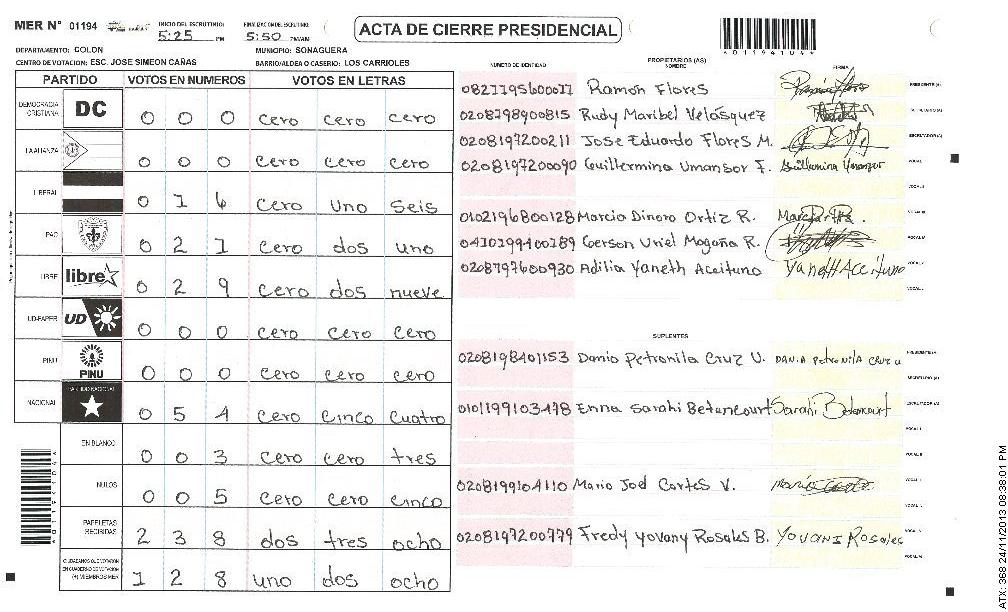 MER N° 01194
INICIO DEL ESCRUTINIO: 5:25 PM
FINALIZACION DEL ESCRUTINIO: 5:50 PM/AM
ACTA DE CIERRE PRESIDENCIAL
DEPARTAMENTO: COLON
MUNICIPIO: SONAGUERA
CENTRO DE VOTACION: ESC. JOSE SIMEON CAÑAS
BARRIO/ALDEA O CASERIO: LOS CARRIOLES
PARTIDO VOTOS EN NUMEROS VOTOS EN LETRAS
DEMOCRACIA CRISTIANA DC 0 0 0 cero cero cero
LA ALIANZA 0 0 0 cero cero cero
LIBERAL 0 1 6 cero uno seis
PAC 0 2 1 cero dos uno
LIBRE libre 0 2 9 cero dos nueve
UD-FAPER UD 0 0 0 cero cero cero
PINU PINU 0 0 0 cero cero cero
NACIONAL PARTIDO NACIONAL 0 5 4 cero cinco cuatro
EN BLANCO 0 0 3 cero cero tres
NULOS 0 0 5 cero cero cinco
PAPELETAS RECIBIDAS 2 3 8 dos tres ocho
1 2 8 uno dos ocho
NUMERO DE IDENTIDAD
PROPIETARIOS (AS)
NOMBRE
FIRMA
Ramón Flores PRESIDENTE (A)
0208198900815 Rudy Maribel Velásquez SECRETARIO (A)
0208197200211 Jose Eduardo Flores M. ESCRUTADOR (A)
0208197200090 Guillermina Umansor F. Guillermina Umanzor VOCAL I
VOCAL II
0102196800128 Marcia Dinora Ortiz R. VOCAL III
Gerson Uriel Magaña R. VOCAL IV
Adilia Yaneth Aceituno Yaneth Aceituno VOCAL V
SUPLENTES
0208198401153 Dania Petronila Cruz U. DANIA Petronila CRUZ U PRESIDENTE (A)
SECRETARIO (A)
0101199103478 Enna Sarahi Betancourt Sarahi Betancourt ESCRUTADOR (A)
VOCAL I
VOCAL II
0208199104110 Mario Joel Cortes V.
0208197200779 Fredy Yovany Rosales B. YOVANI Rosales
ATX: 368 24/11/2013 08:38:01 PM